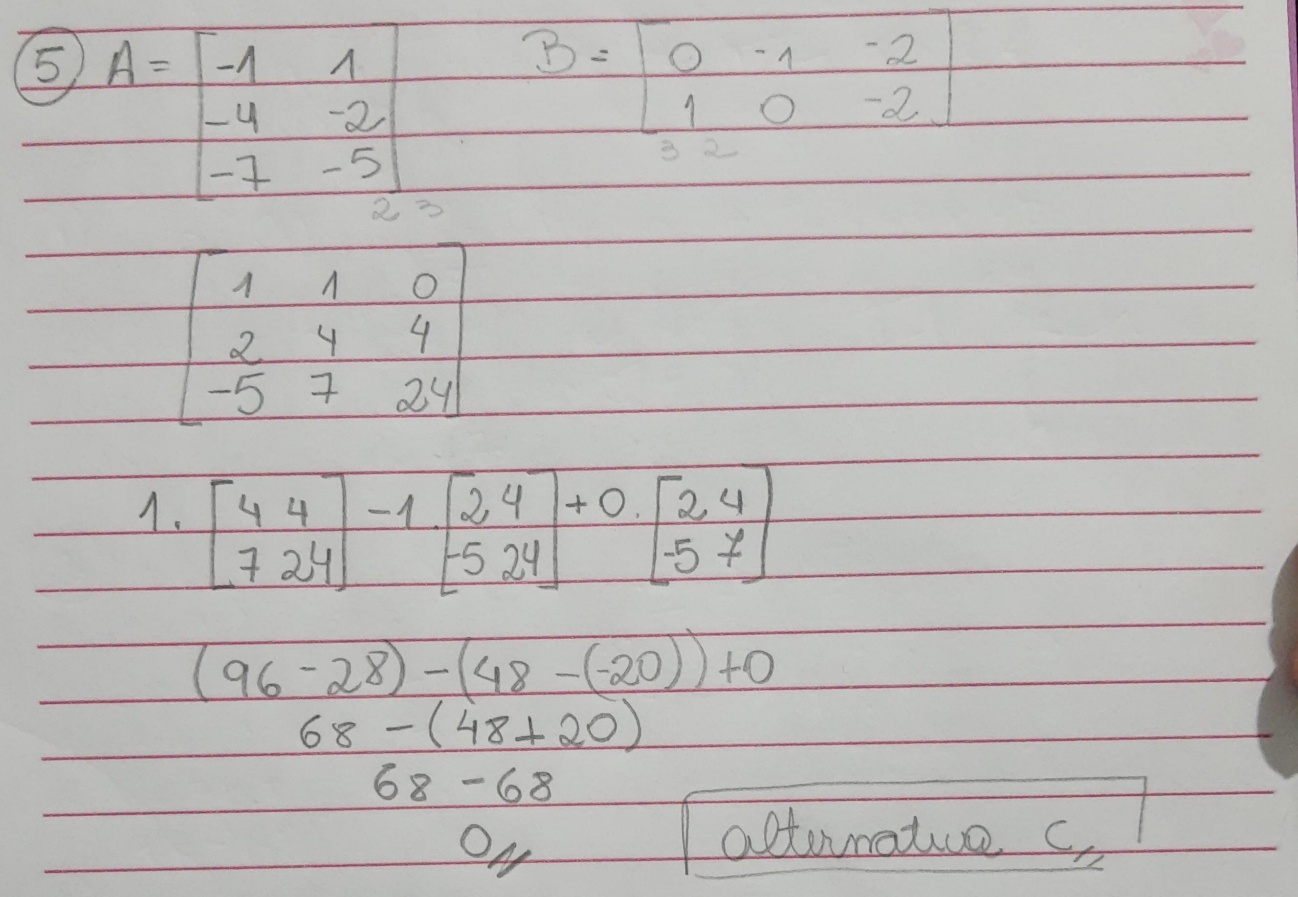 5 A = [ -1 1 B = [ 0 -1 -2 ]
-4 -2 1 0 -2
-7 -5 ] 3 2
2 3
[ 1 1 0
2 4 4
-5 7 24 ]
1. [ 4 4 ] -1. [ 2 4 ] +0. [ 2 4 ]
[ 7 24 ] [ -5 24 ] [ -5 7 ]
(96 - 28) - (48 - (-20)) + 0
68 - (48 + 20)
68 - 68
0,,
alternativa C,,